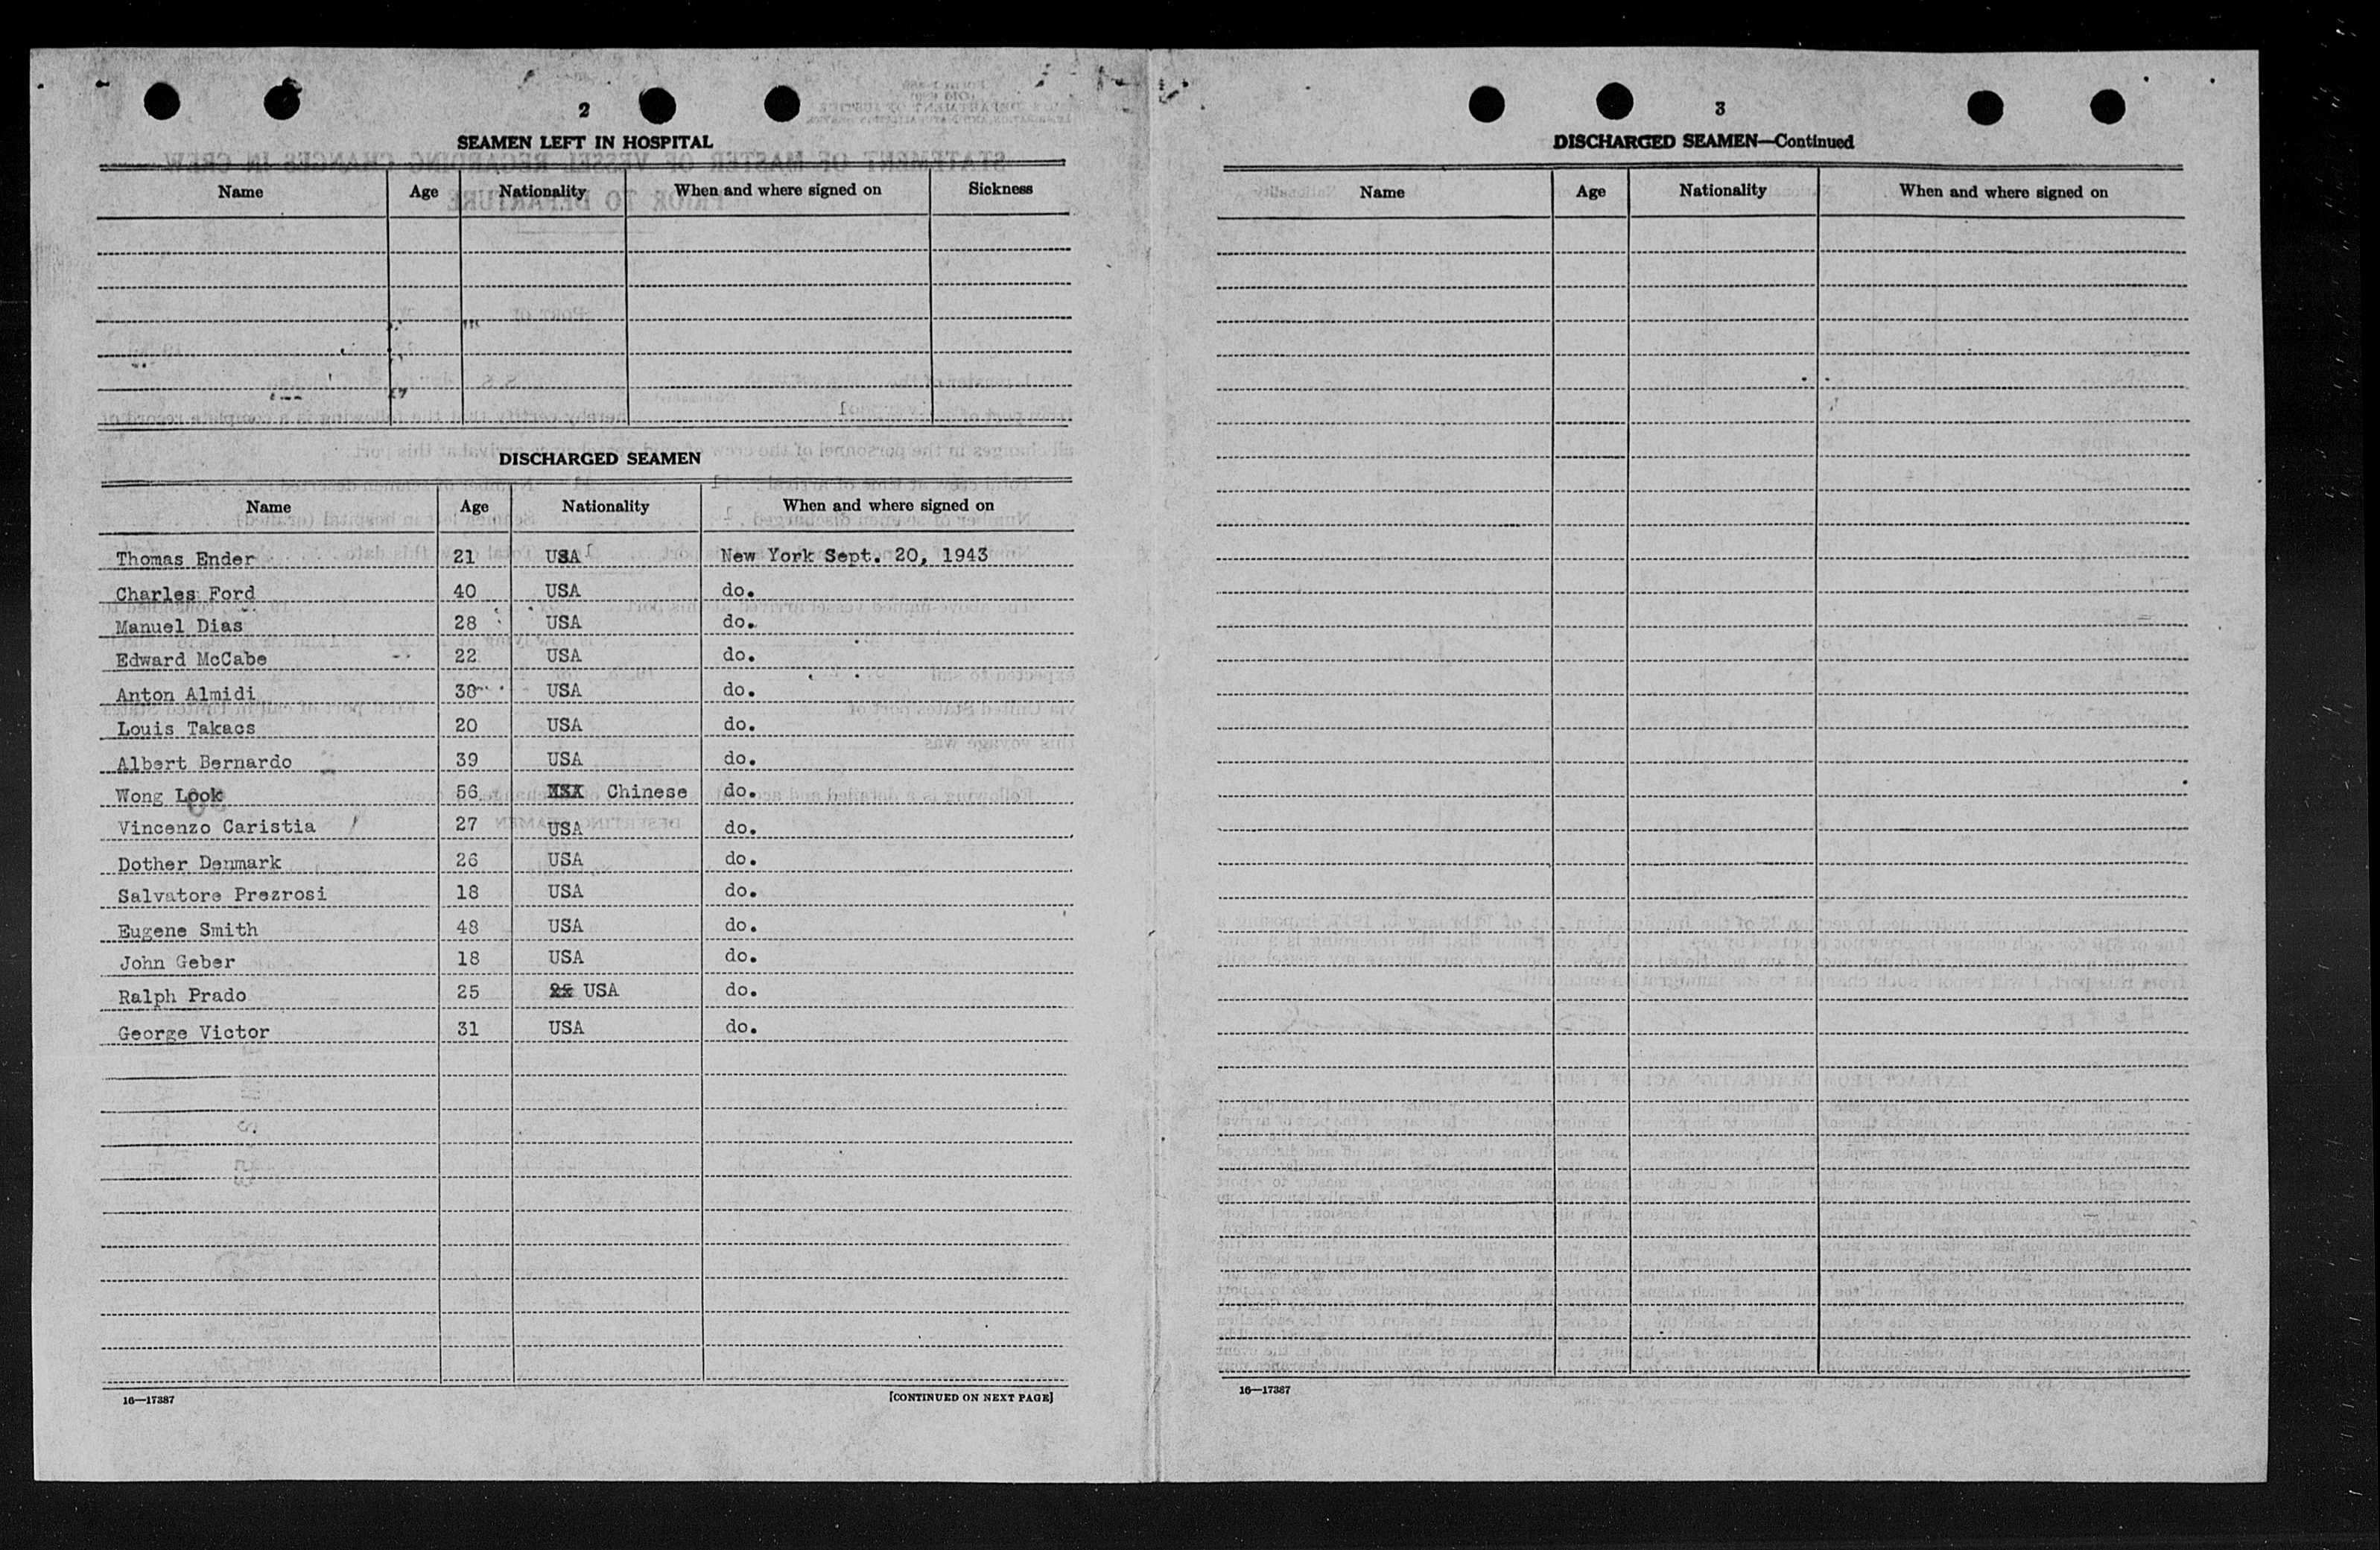 2
SEAMEN LEFT IN HOSPITAL
Name Age Nationality When and where signed on Sickness
DISCHARGED SEAMEN
Name Age Nationality When and where signed on
Thomas Ender 21 USA New York Sept. 20, 1943
Charles Ford 40 USA do.
Manuel Dias 28 USA do.
Edward McCabe 22 USA do.
Anton Almidi 38 USA do.
Louis Takacs 20 USA do.
Albert Bernardo 39 USA do.
Wong Look 56 Chinese do.
Vincenzo Caristia 27 USA do.
Dother Denmark 26 USA do.
Salvatore Prezrosi 18 USA do.
Eugene Smith 48 USA do.
John Geber 18 USA do.
Ralph Prado 25 USA do.
George Victor 31 USA do.
16—17387 [CONTINUED ON NEXT PAGE]
3
DISCHARGED SEAMEN—Continued
Name Age Nationality When and where signed on
16—17387